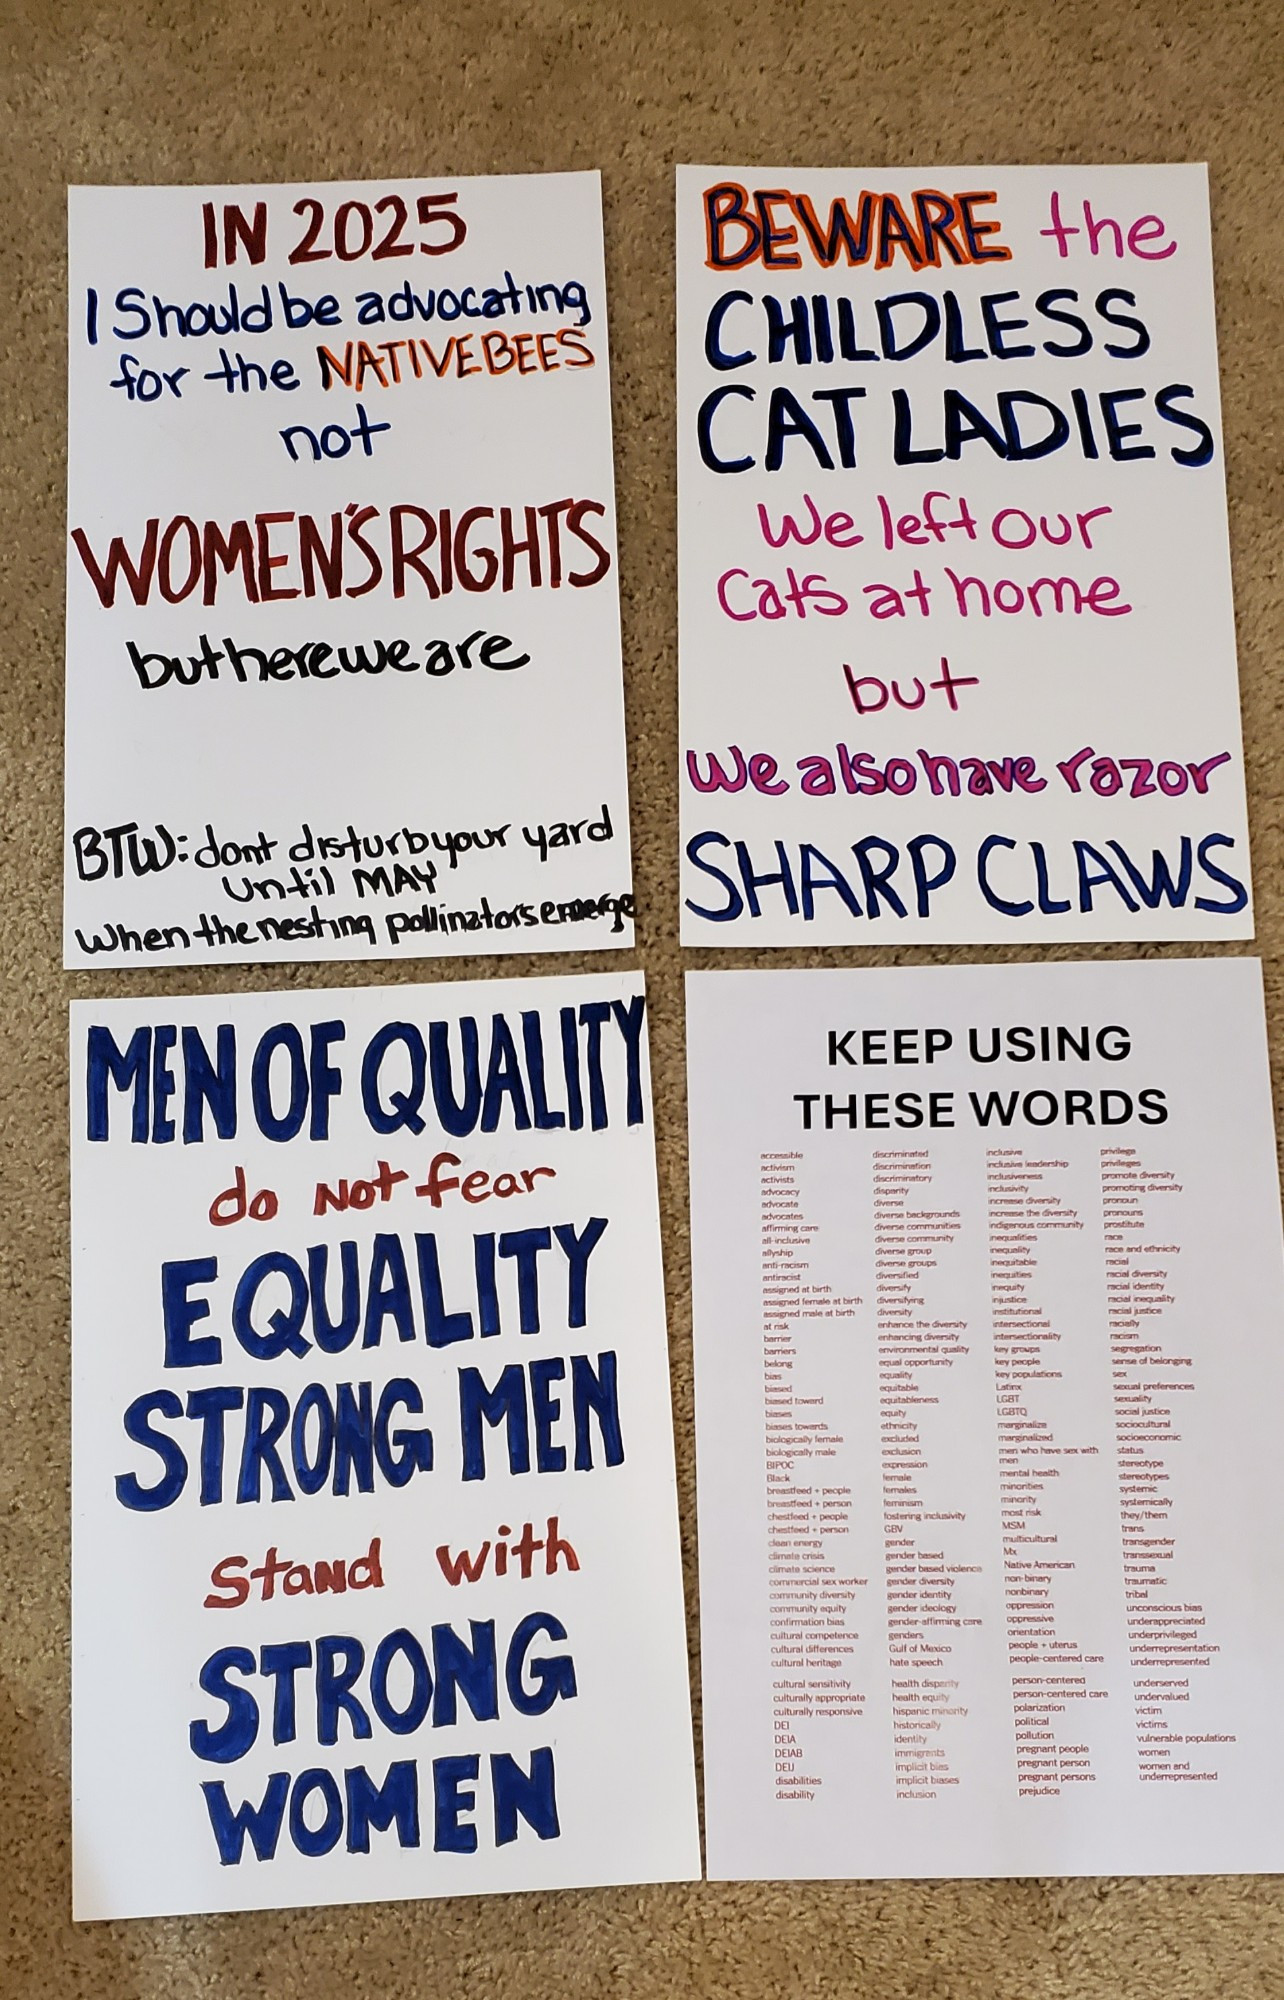 IN 2025
I Should be advocating
for the NATIVE BEES
not
WOMEN'S RIGHTS
but here we are
BTW: dont disturb your yard
until MAY
when the nesting pollinators emerge
BEWARE the
CHILDLESS
CAT LADIES
We left our
Cats at home
but
We also have razor
SHARP CLAWS
MEN OF QUALITY
do NOT fear
EQUALITY
STRONG MEN
Stand with
STRONG
WOMEN
KEEP USING
THESE WORDS
accessible
activism
activists
advocacy
advocate
advocates
affirming care
all-inclusive
allyship
anti-racism
antiracist
assigned at birth
assigned female at birth
assigned male at birth
at risk
barrier
barriers
belong
bias
biased
biased toward
biases
biases towards
biologically female
biologically male
BIPOC
Black
breastfeed + people
breastfeed + person
chestfeed + people
chestfeed + person
clean energy
climate crisis
climate science
commercial sex worker
community diversity
community equity
confirmation bias
cultural competence
cultural differences
cultural heritage
cultural sensitivity
culturally appropriate
culturally responsive
DEI
DEIA
DEIAB
DEIJ
disabilities
disability
discriminated
discrimination
discriminatory
disparity
diverse
diverse backgrounds
diverse communities
diverse community
diverse group
diverse groups
diversified
diversify
diversifying
diversity
enhance the diversity
enhancing diversity
environmental quality
equal opportunity
equality
equitable
equitableness
equity
ethnicity
excluded
exclusion
expression
female
females
feminism
fostering inclusivity
GBV
gender
gender based
gender based violence
gender diversity
gender identity
gender ideology
gender-affirming care
genders
Gulf of Mexico
hate speech
health disparity
health equity
hispanic minority
historically
identity
immigrants
implicit bias
implicit biases
inclusion
inclusive
inclusive leadership
inclusiveness
inclusivity
increase diversity
increase the diversity
indigenous community
inequalities
inequality
inequitable
inequities
inequity
injustice
institutional
intersectional
intersectionality
key groups
key people
key populations
Latinx
LGBT
LGBTQ
marginalize
marginalized
men who have sex with
men
mental health
minorities
minority
most risk
MSM
multicultural
Mx
Native American
non-binary
nonbinary
oppression
oppressive
orientation
people + uterus
people-centered care
person-centered
person-centered care
polarization
political
pollution
pregnant people
pregnant person
pregnant persons
prejudice
privilege
privileges
promote diversity
promoting diversity
pronoun
pronouns
prostitute
race
race and ethnicity
racial
racial diversity
racial identity
racial inequality
racial justice
racially
racism
segregation
sense of belonging
sex
sexual preferences
sexuality
social justice
sociocultural
socioeconomic
status
stereotype
stereotypes
systemic
systemically
they/them
trans
transgender
transsexual
trauma
traumatic
tribal
unconscious bias
underappreciated
underprivileged
underrepresentation
underrepresented
underserved
undervalued
victim
victims
vulnerable populations
women
women and
underrepresented